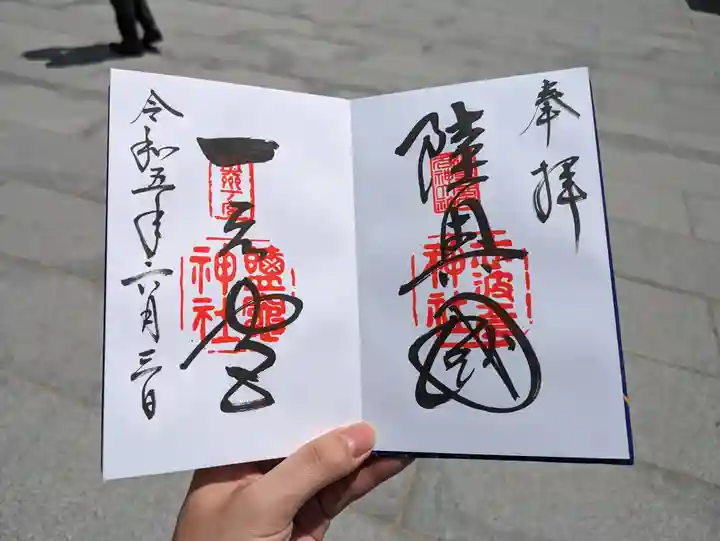 奉拝
陸奥国
志波彦神社
一之宮
鹽竈神社
令和五年六月三日